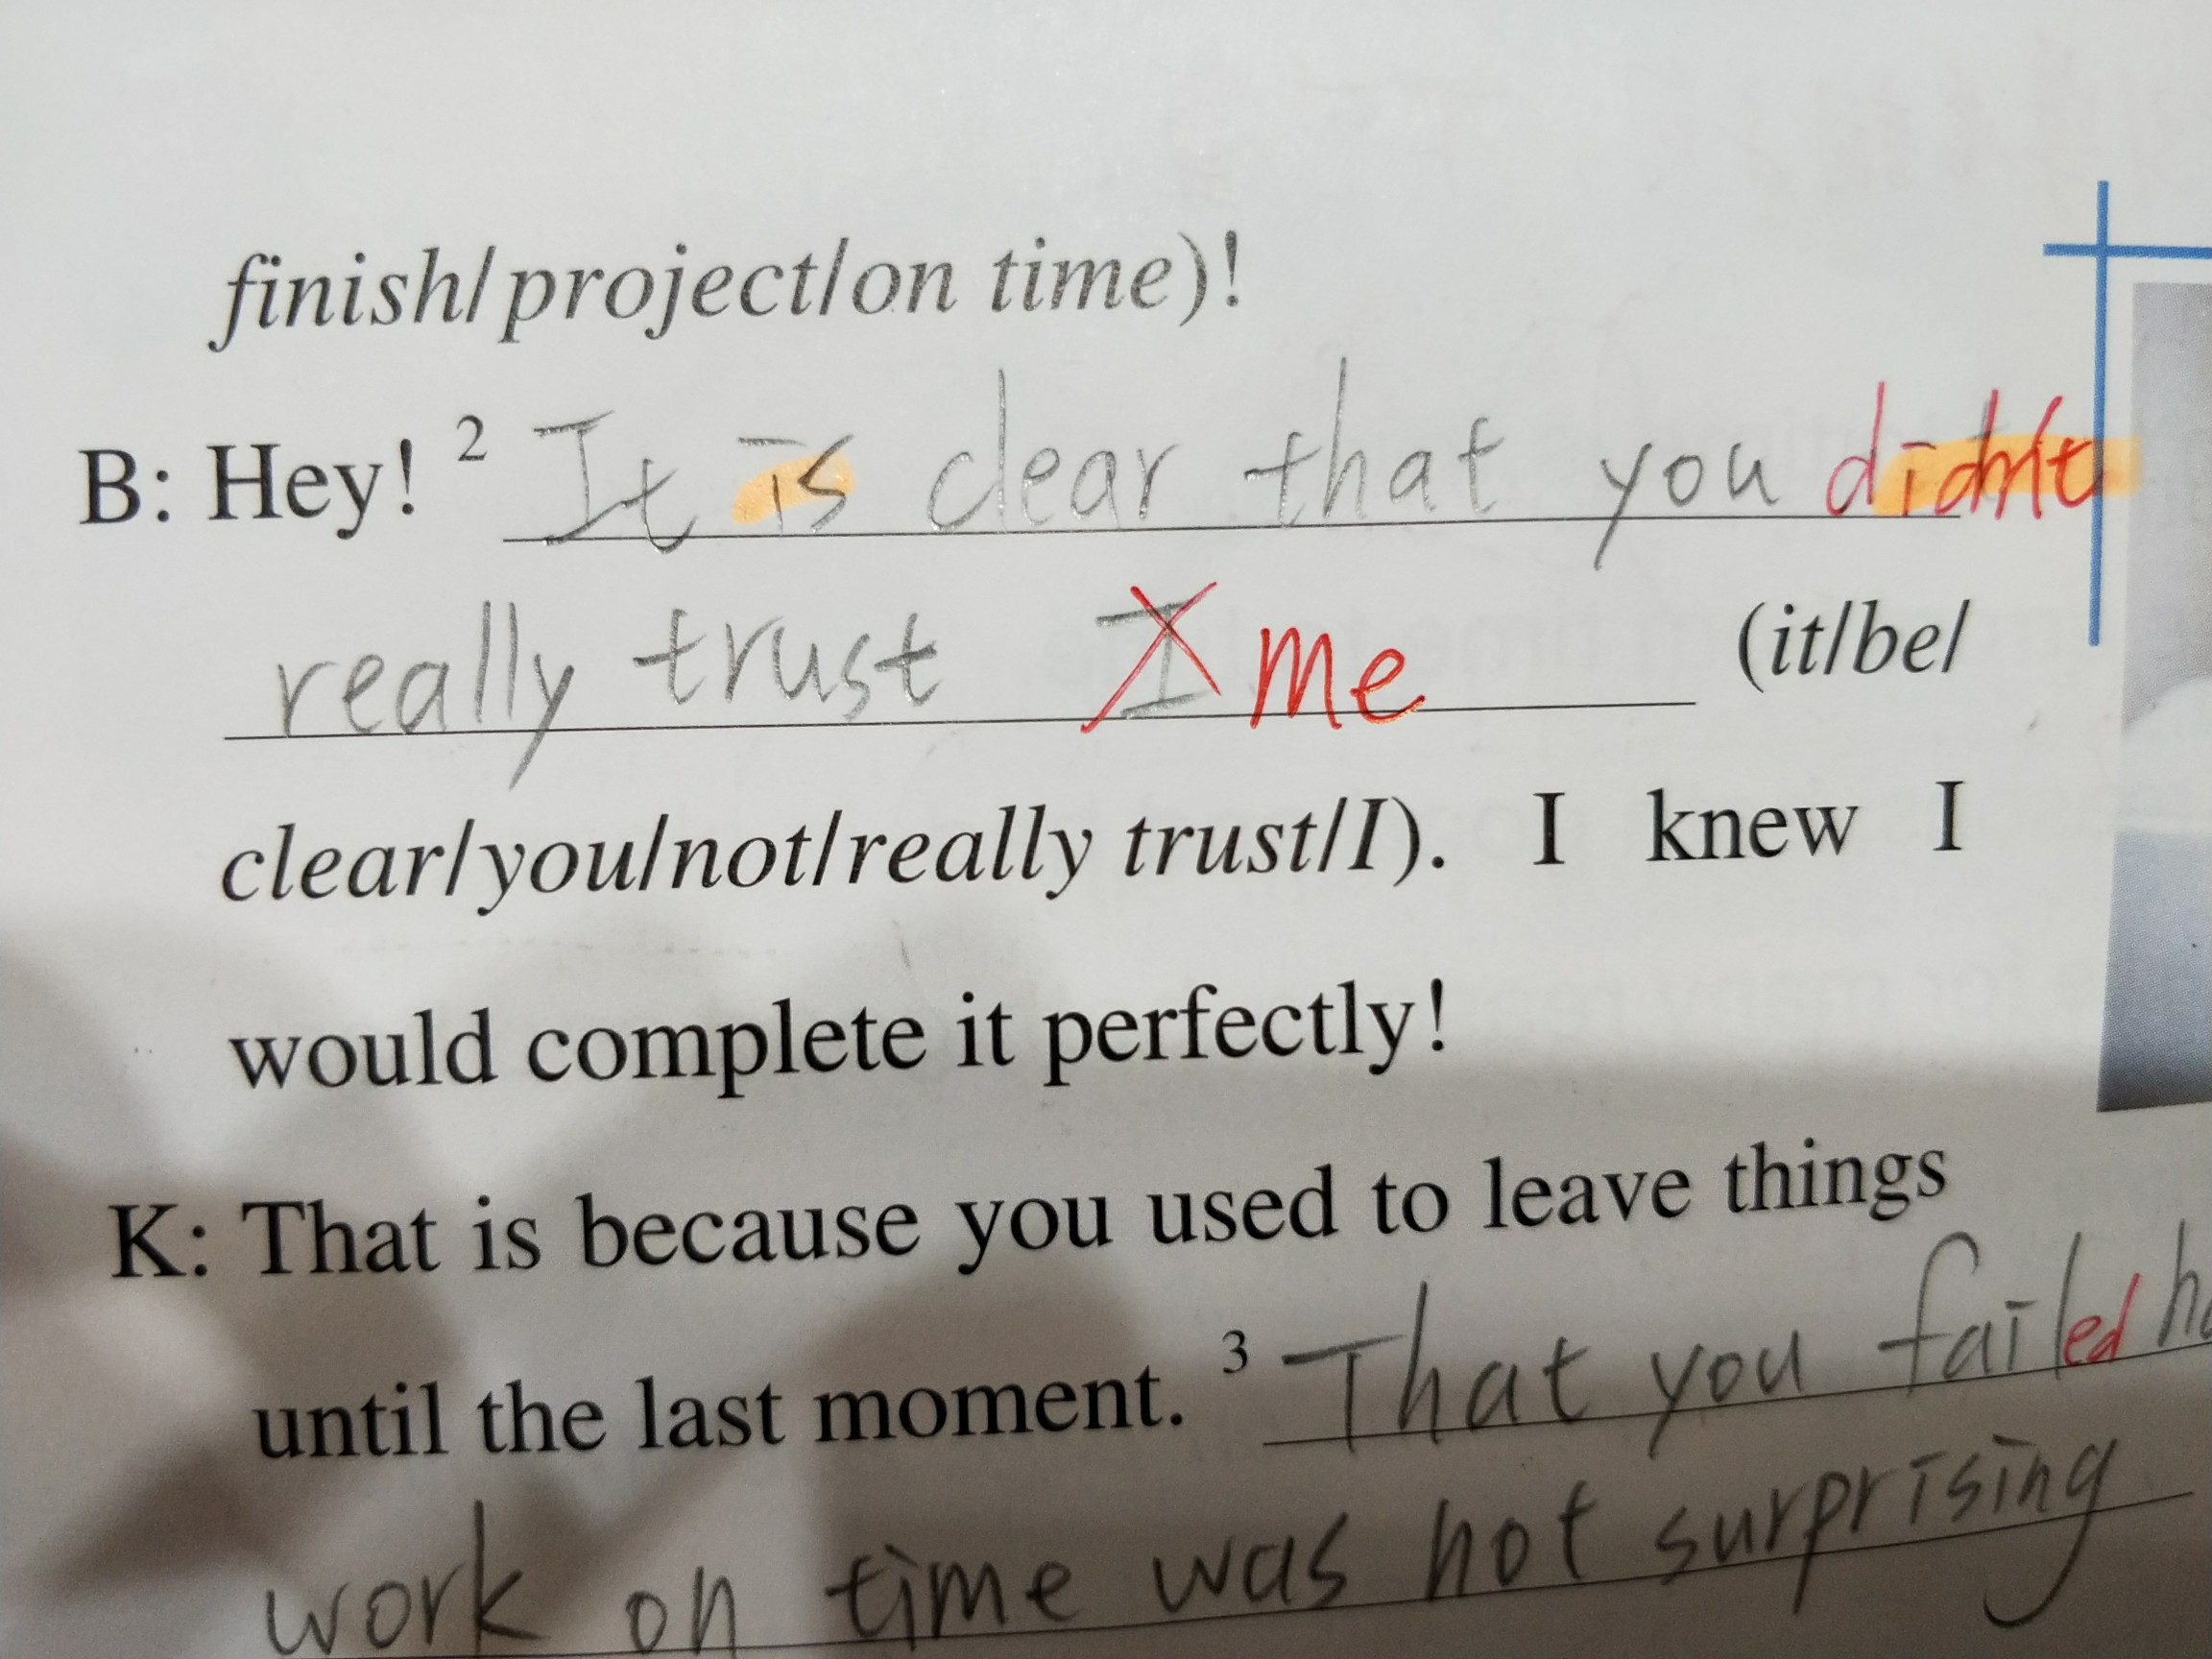 finish/project/on time)!
B: Hey! 2 It is clear that you didn't
really trust I me (it/be/
clear/you/not/really trust/I). I knew I
would complete it perfectly!
K: That is because you used to leave things
until the last moment. 3 That you failed
work on time was not surprising